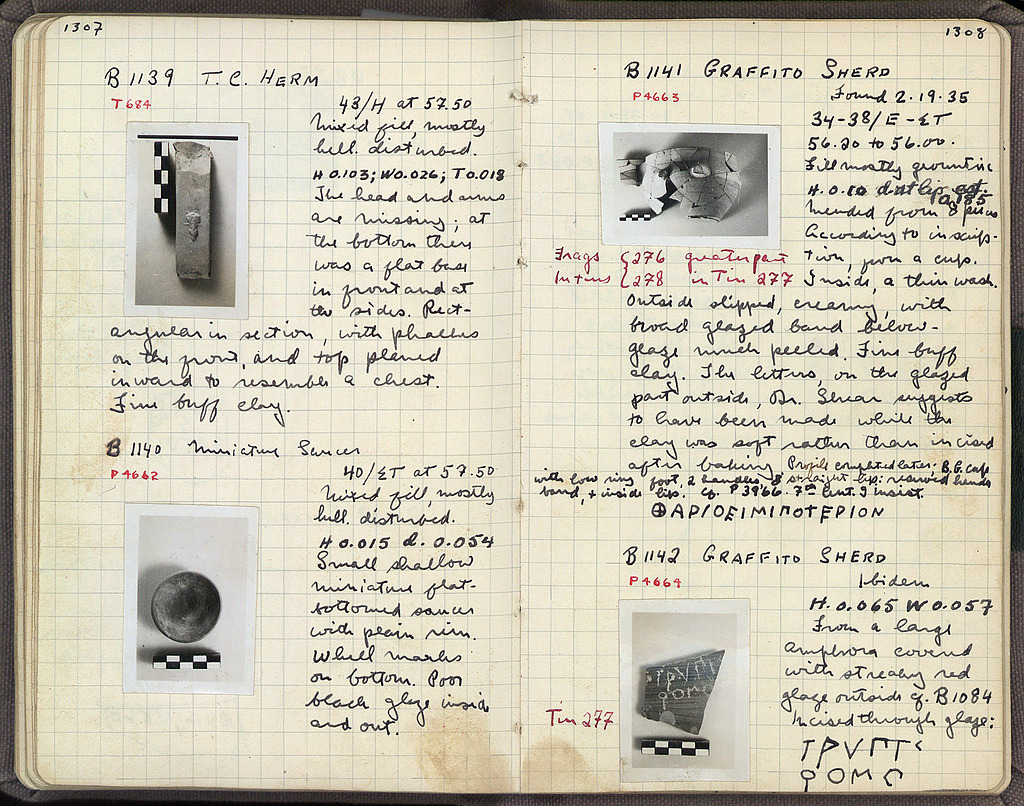 1307
B 1139 T.C. HERM
T 684
43/H at 57.50
Mixed fill, mostly
hell. disturbed.
H 0.103; W 0.026; T 0.018
The head and arms
are missing; at
the bottom there
was a flat base
in front and at
the sides. Rect-
angular in section, with phallus
on the front, and top planed
inward to resemble a chest.
Fine buff clay.
B 1140 Miniature Saucer
P 4662
40/ΣT at 57.50
Mixed fill, mostly
hell. disturbed.
H 0.015 d. 0.054
Small shallow
miniature flat-
bottomed saucer
with plain rim.
Wheel marks
on bottom. Poor
black glaze inside
and out.
1308
B 1141 GRAFFITO SHERD
P 4663
Found 2.19.35
34-38/E-ΣT
56.20 to 56.00.
Fill mostly geometric
H. 0.10 d. at lip est.
0.135
Mended from 8 pieces
According to inscrip-
tion, from a cup.
Frags { 276 greater part
Intrus { 278 in Tin 277
Inside, a thin wash.
Outside slipped, creamy, with
broad glazed band below-
glaze much peeled. Fine buff
clay. The letters, on the glazed
part outside, Dr. Shear suggests
to have been made while the
clay was soft rather than incised
after baking. Profile completed later: B.G. cup
with low ring foot, 2 handles & straight lip: reserved hands
band, + inside lip. Cf. P 3966. 7th Cent. I insist.
⊕ΑΡΙΟΕΙΜΙΠΟΤΕΡΙΟΝ
B 1142 GRAFFITO SHERD
P 4664
Ibidem
H. 0.065 W 0.057
From a large
amphora covered
with streaky red
glaze outside cf. B 1084
Incised through glaze:
Tin 277
ΤΡΥΠΤς
ϘΟΜΣ